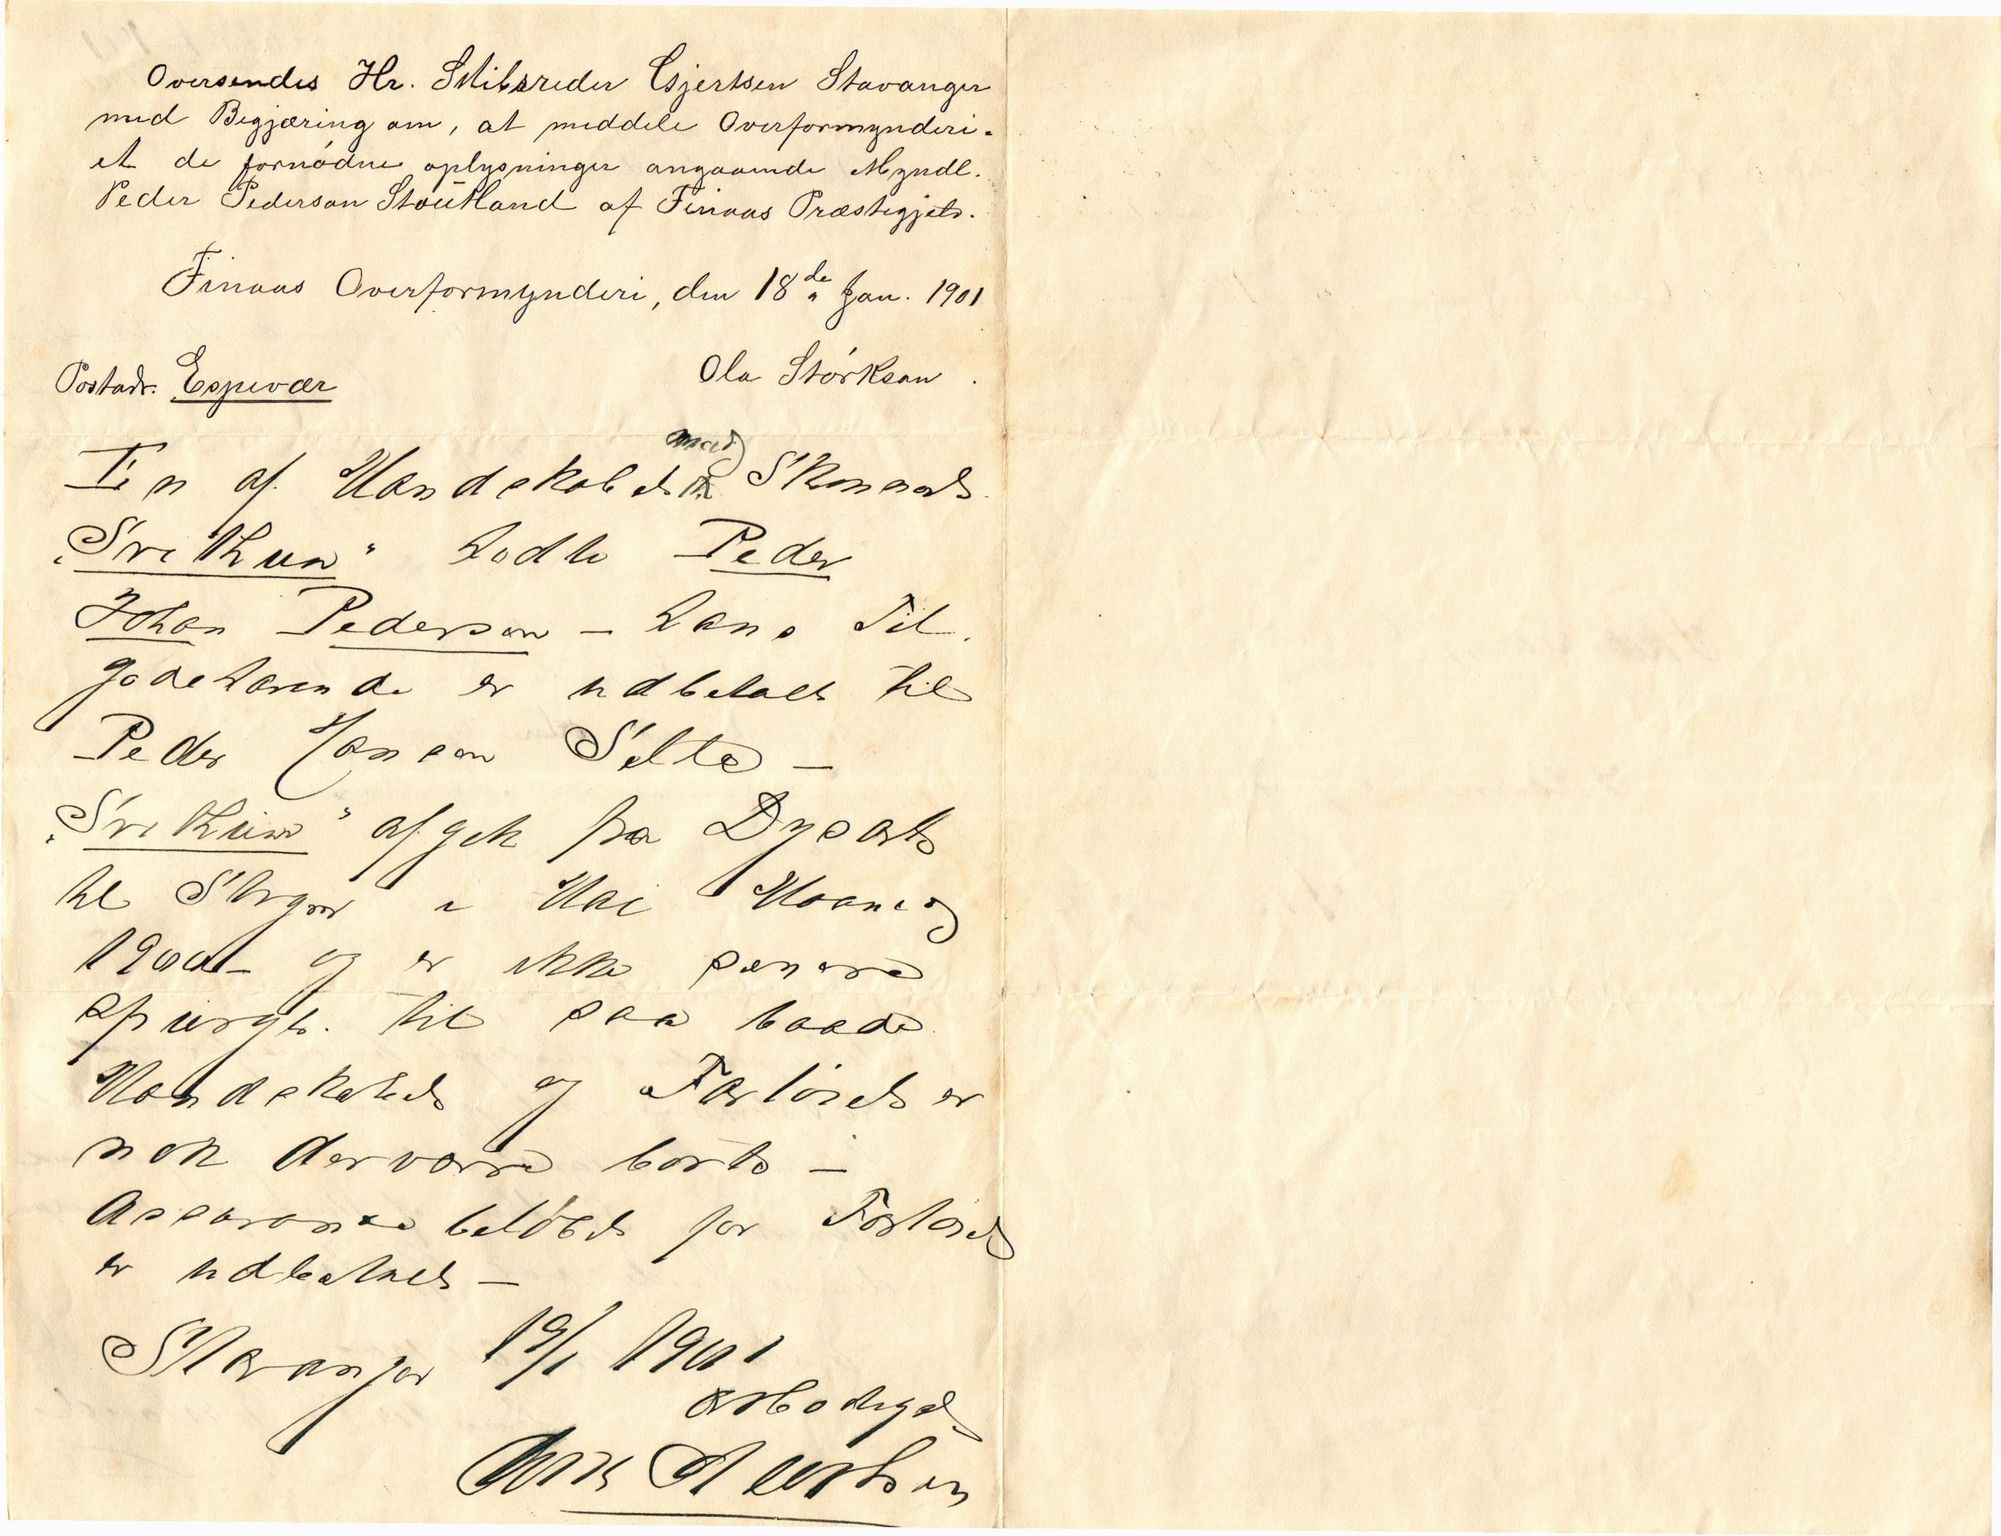 Oversendes Hr. Skibsreder Gjertsen Stavanger
med Begjæring om, at meddele Overformynderi-
et de fornødne oplysninger angaaende Myndl.
Peder Pederson Stoutland af Finaas Præstegjeld.
Finaas Overformynderi, den 18de Jan. 1901
Postadr. Espevær
Ola Störkson.
En af Mandskabet med Skonnert
"Svithun" hedte Peder
Johan Pederson – hans Til-
godehavende er udbetalt til
Peder Hanson Silte –
"Svithun" afgik fra Dysart
til i Mai Maaned
1900 – og er ikke senere
spurgt til saa baade
Mandskabet og Fartöiet er
nok derværre borte –
Assurancebelöbet for Fartöiet
er udbetalt –
Stavanger 19/1 1901
ærbødigst